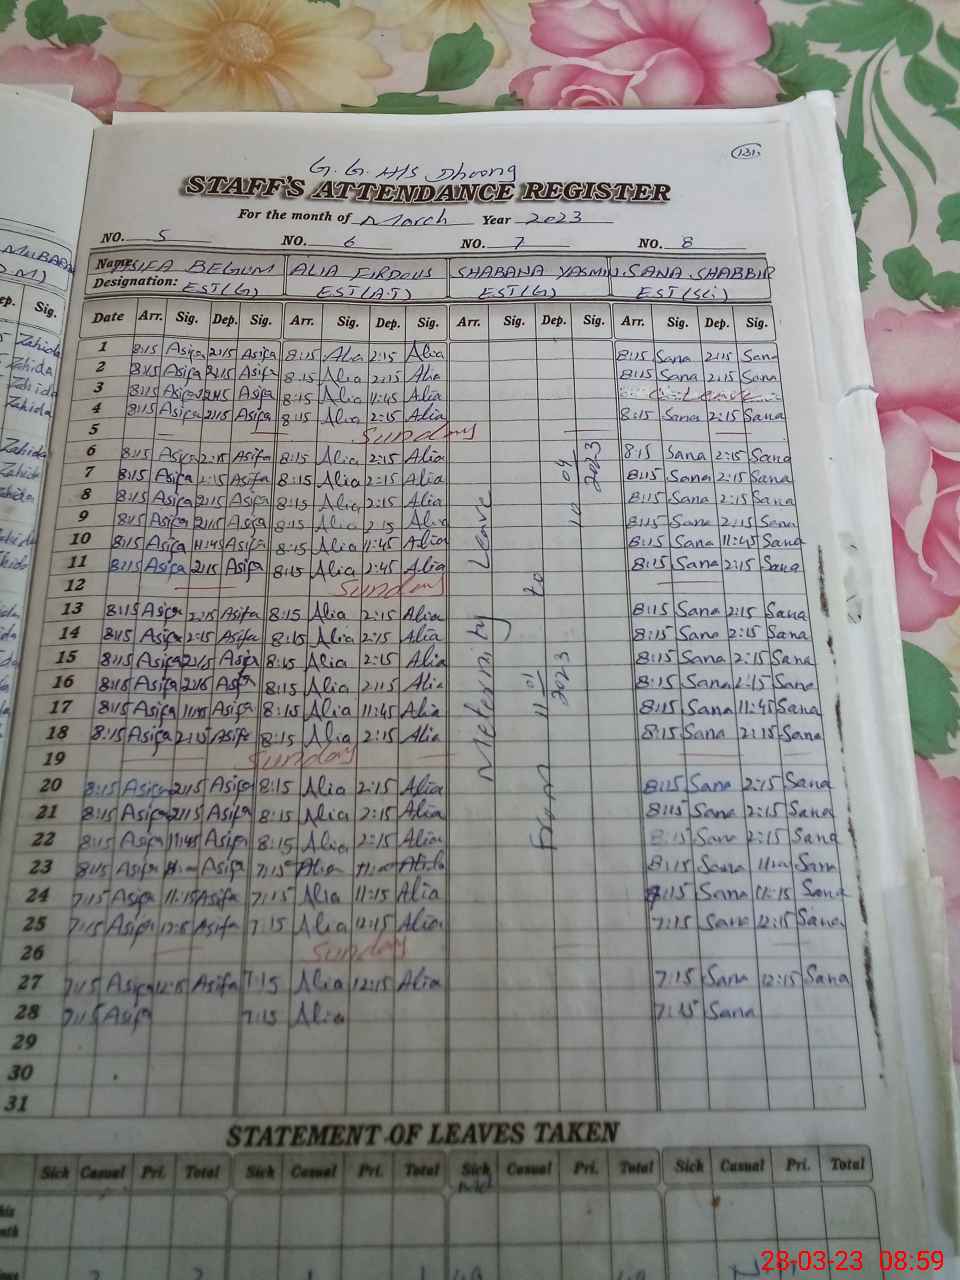 131
G. G. H/S Dhoong
STAFF'S ATTENDANCE REGISTER
For the month of March Year 2023
NO. 5 NO. 6 NO. 7 NO. 8
Name: ASIFA BEGUM ALIA FIRDOUS SHABANA YASMIN SANA SHABBIR
Designation: EST(G) EST(A.T) EST(G) EST(Sci)
Date Arr. Sig. Dep. Sig. Arr. Sig. Dep. Sig. Arr. Sig. Dep. Sig. Arr. Sig. Dep. Sig.
1 8:15 Asifa 2:15 Asifa 8:15 Alia 2:15 Alia 8:15 Sana 2:15 Sana
2 8:15 Asifa 2:15 Asifa 8:15 Alia 2:15 Alia 8:15 Sana 2:15 Sana
3 8:15 Asifa 11:45 Asifa 8:15 Alia 11:45 Alia Leave
4 8:15 Asifa 2:15 Asifa 8:15 Alia 2:15 Alia 8:15 Sana 2:15 Sana
5 Sunday
6 8:15 Asifa 2:15 Asifa 8:15 Alia 2:15 Alia 8:15 Sana 2:15 Sana
7 8:15 Asifa 2:15 Asifa 8:15 Alia 2:15 Alia 8:15 Sana 2:15 Sana
8 8:15 Asifa 2:15 Asifa 8:15 Alia 2:15 Alia 8:15 Sana 2:15 Sana
9 8:15 Asifa 2:15 Asifa 8:15 Alia 2:15 Alia 8:15 Sana 2:15 Sana
10 8:15 Asifa 11:45 Asifa 8:15 Alia 11:45 Alia 8:15 Sana 11:45 Sana
11 8:15 Asifa 2:15 Asifa 8:15 Alia 2:45 Alia 8:15 Sana 2:15 Sana
12 Sunday
13 8:15 Asifa 2:15 Asifa 8:15 Alia 2:15 Alia 8:15 Sana 2:15 Sana
14 8:15 Asifa 2:15 Asifa 8:15 Alia 2:15 Alia 8:15 Sana 2:15 Sana
15 8:15 Asifa 2:15 Asifa 8:15 Alia 2:15 Alia 8:15 Sana 2:15 Sana
16 8:15 Asifa 2:15 Asifa 8:15 Alia 2:15 Alia 8:15 Sana 2:15 Sana
17 8:15 Asifa 11:45 Asifa 8:15 Alia 11:45 Alia 8:15 Sana 11:45 Sana
18 8:15 Asifa 2:15 Asifa 8:15 Alia 2:15 Alia 8:15 Sana 2:15 Sana
19 Sunday
20 8:15 Asifa 2:15 Asifa 8:15 Alia 2:15 Alia 8:15 Sana 2:15 Sana
21 8:15 Asifa 2:15 Asifa 8:15 Alia 2:15 Alia 8:15 Sana 2:15 Sana
22 8:15 Asifa 11:45 Asifa 8:15 Alia 2:15 Alia 8:15 Sana 2:15 Sana
23 8:15 Asifa Asifa 7:15 Alia Alia 8:15 Sana Sana
24 7:15 Asifa 11:15 Asifa 7:15 Alia 11:15 Alia 8:15 Sana 11:15 Sana
25 7:15 Asifa 12:15 Asifa 7:15 Alia 12:15 Alia 7:15 Sana 12:15 Sana
26 Sunday
27 7:15 Asifa 12:15 Asifa 7:15 Alia 12:15 Alia 7:15 Sana 12:15 Sana
28 7:15 Asifa 7:15 Alia 7:15 Sana
29
30
31
Meternity Leave
From 11 01 2023 to 10 04 2023
STATEMENT OF LEAVES TAKEN
Sick Casual Pri. Total Sick Casual Pri. Total Sick Casual Pri. Total Sick Casual Pri. Total
Sig.
Zahida
Zahida
Zahida
Zahida
Zahida
28-03-23 08:59